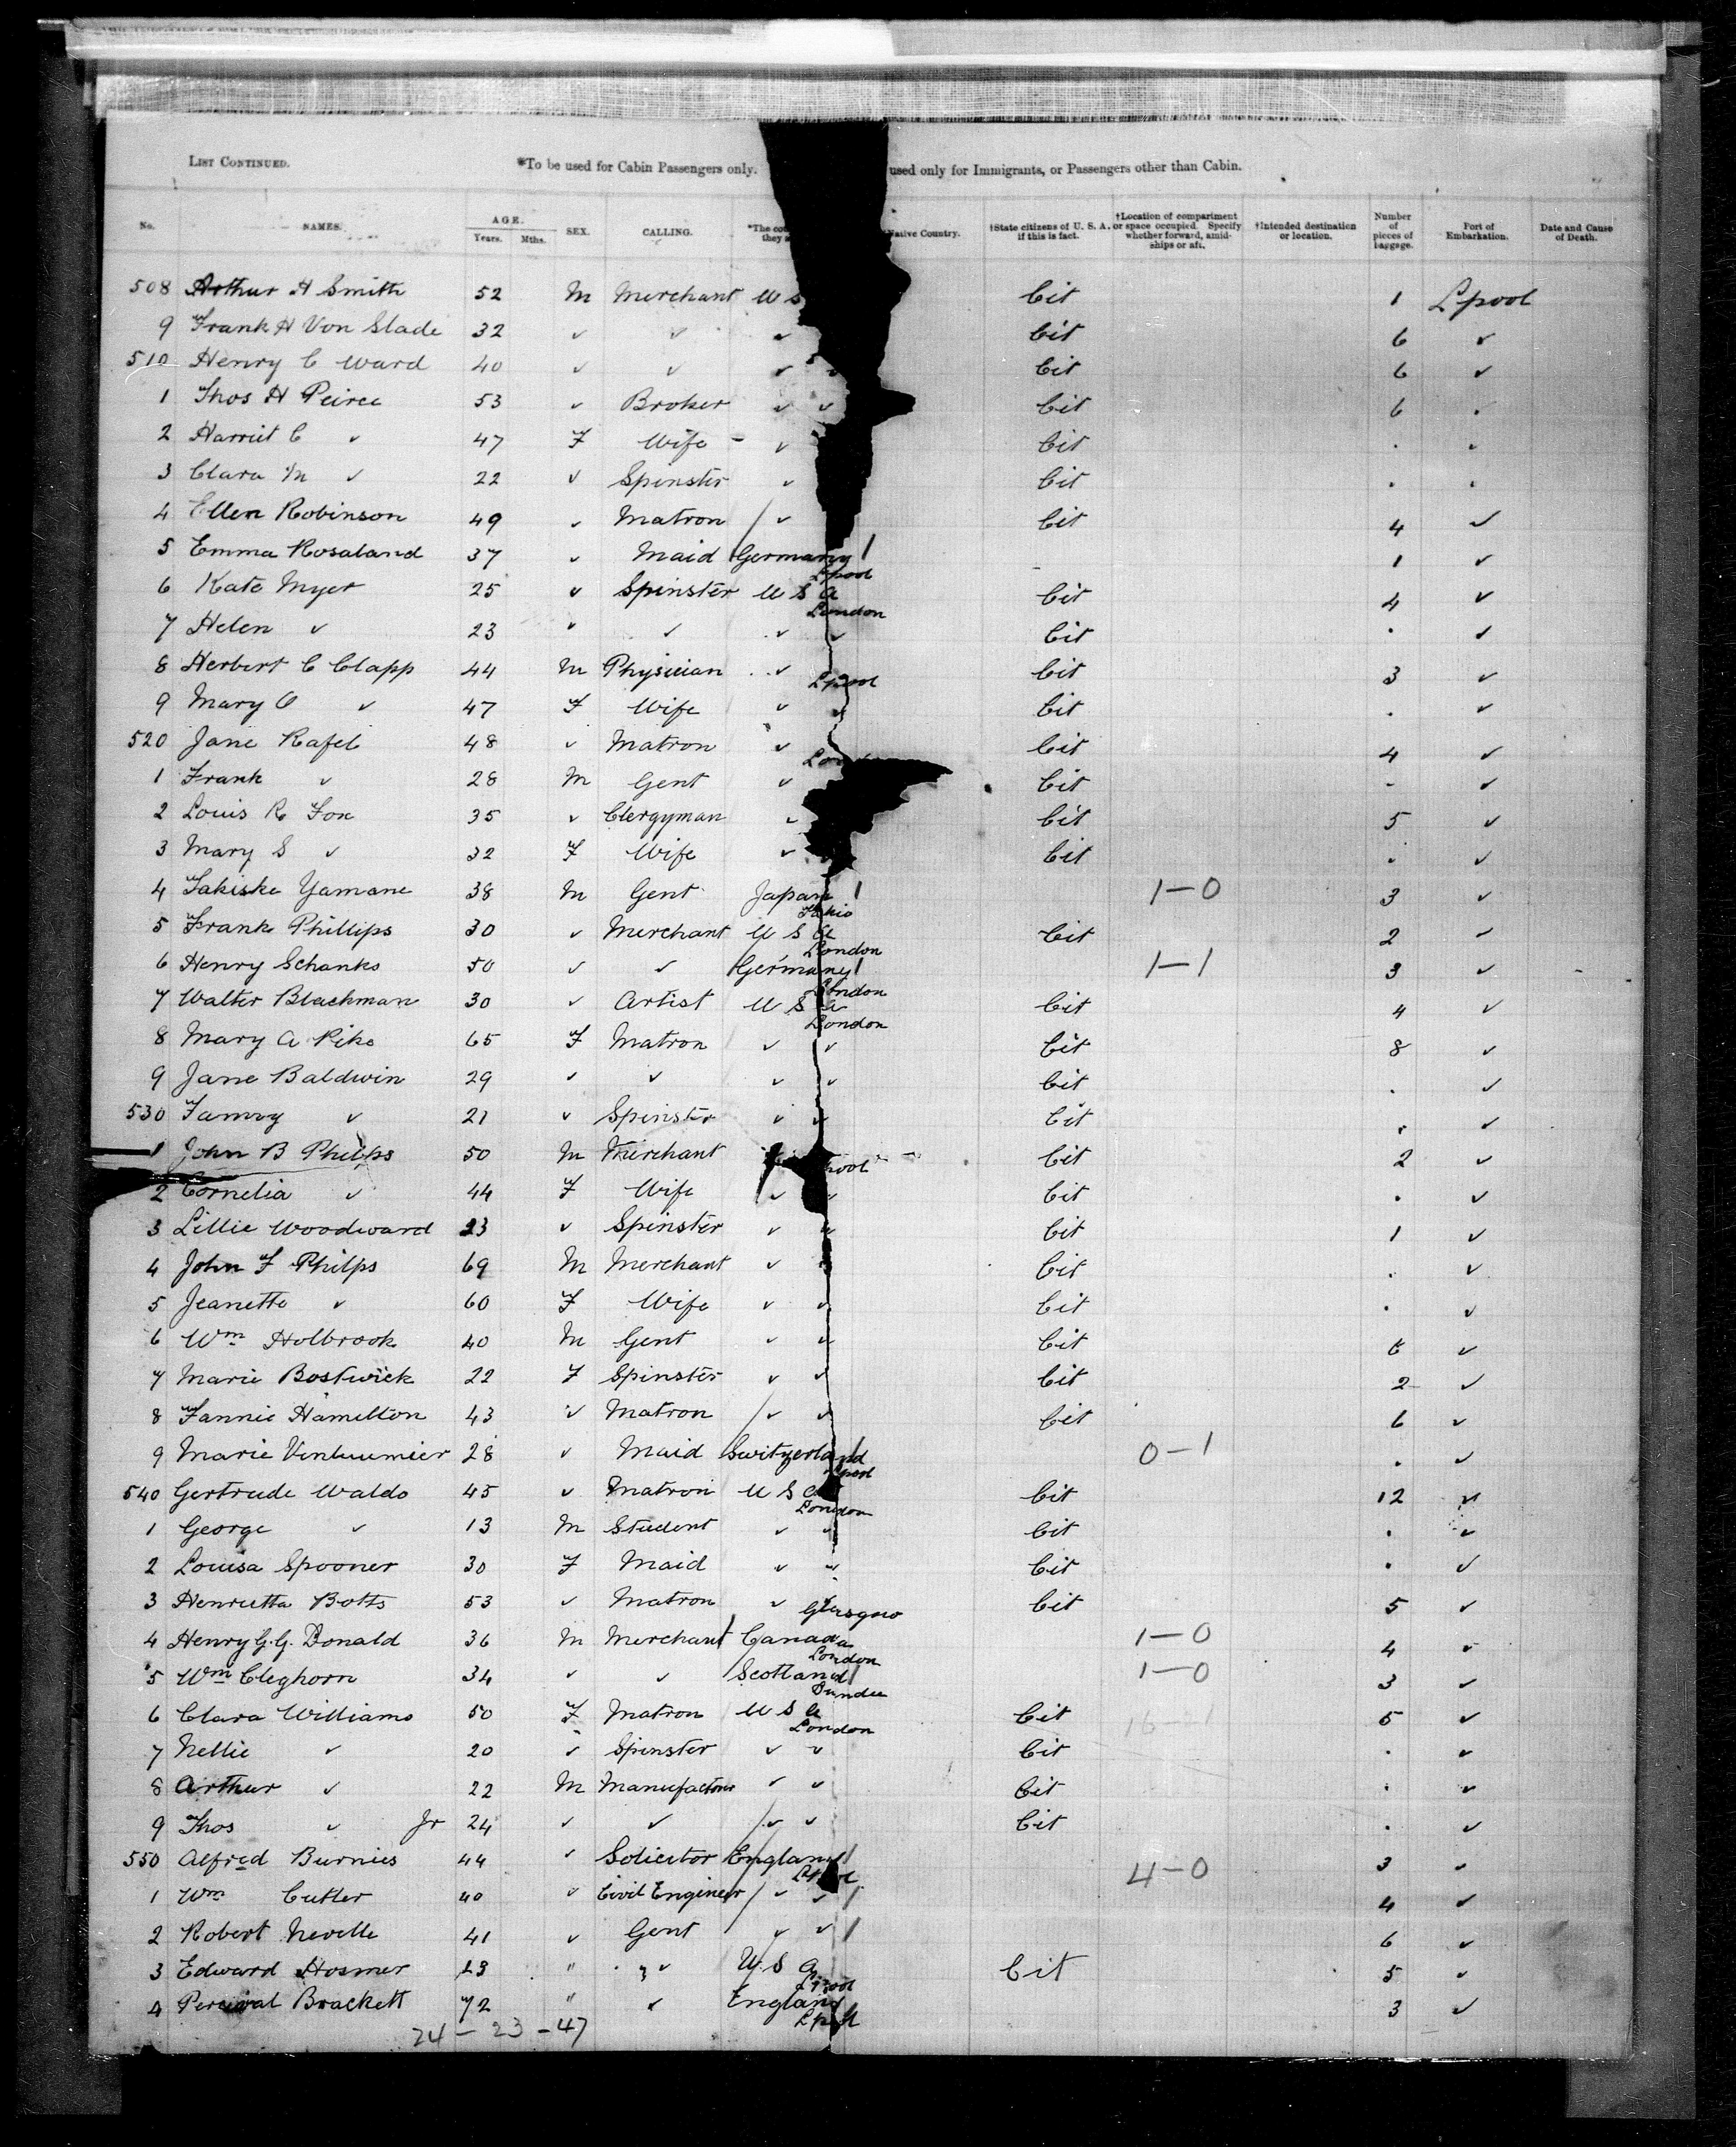 LIST CONTINUED. *To be used for Cabin Passengers only. used only for Immigrants, or Passengers other than Cabin.
No. NAMES. AGE. Years. Mths. SEX. CALLING. *The they Native Country. †State citizens of U. S. A. if this is fact. †Location of compartment or space occupied. Specify whether forward, amidships or aft. †Intended destination or location. Number of pieces of baggage. Port of Embarkation. Date and Cause of Death.
508 Arthur H Smith 52 M Merchant U S Cit 1 Lpool
9 Frank H Von Slade 32 ✓ ✓ ✓ Cit 6 ✓
510 Henry C Ward 40 ✓ ✓ ✓ Cit 6 ✓
1 Thos H Peirce 53 ✓ Broker ✓ ✓ Cit 6 .
2 Harriet C ✓ 47 F Wife - ✓ Cit . .
3 Clara M ✓ 22 ✓ Spinster ✓ Cit . .
4 Ellen Robinson 49 ✓ Matron / ✓ Cit 4 ✓
5 Emma Rosaland 37 ✓ Maid Germany / Lpool 1 ✓
6 Kate Myer 25 ✓ Spinster U S A London Cit 4 ✓
7 Helen ✓ 23 ✓ ✓ ✓ ✓ Cit . ✓
8 Herbert C Clapp 44 M Physician ✓ Lpool Cit 3 ✓
9 Mary O ✓ 47 F Wife ✓ ✓ Cit . ✓
520 Jane Rafel 48 ✓ Matron ✓ Cit 4 ✓
1 Frank ✓ 28 M Gent ✓ Cit - ✓
2 Louis R Fox 35 ✓ Clergyman ✓ Cit 5 ✓
3 Mary S ✓ 32 F Wife ✓ Cit . ✓
4 Takiske Yamane 38 M Gent Japan / Tokio 1-0 3 ✓
5 Frank Phillips 30 ✓ Merchant U S A London Cit 2 ✓
6 Henry Schanks 50 ✓ ✓ Germany / London 1-1 3 ✓
7 Walter Blachman 30 ✓ Artist U S A London Cit 4 ✓
8 Mary A Pike 65 F Matron ✓ ✓ Cit 8 ✓
9 Jane Baldwin 29 ✓ ✓ ✓ ✓ Cit . ✓
530 ✓ 21 ✓ Spinster ✓ ✓ Cit . ✓
1 John B Phelps 50 M Merchant Cit 2 ✓
2 Cornelia ✓ 44 F Wife ✓ ✓ Cit . ✓
3 Lillie Woodward 23 ✓ Spinster ✓ ✓ Cit 1 ✓
4 John F Philps 69 M Merchant ✓ Cit . ✓
5 Jeanette ✓ 60 F Wife ✓ ✓ Cit . ✓
6 Wm Holbrook 40 M Gent ✓ ✓ Cit 6 ✓
7 Marie Bostwick 22 F Spinster ✓ ✓ Cit 2 ✓
8 Fannie Hamilton 43 ✓ Matron / ✓ ✓ Cit 6 ✓
9 Marie 28 ✓ Maid Switzerland Lpool 0-1 . ✓
540 Gertrude Waldo 45 ✓ Matron U S A London Cit 12 ✓
1 George ✓ 13 M Student ✓ ✓ Cit . ✓
2 Louisa Spooner 30 F Maid ✓ ✓ Cit . ✓
3 Henrietta Botts 53 ✓ Matron ✓ Glasgow Cit 5 ✓
4 Henry G.G. Donald 36 M Merchant Canada London 1-0 4 ✓
5 Wm Cleghorn 34 ✓ ✓ Scotland / Dundee 1-0 3 ✓
6 Clara Williams 50 F Matron U S A London Cit 16-1 5 ✓
7 Nellie ✓ 20 ✓ Spinster ✓ ✓ Cit . ✓
8 Arthur ✓ 22 M Manufacturer ✓ ✓ Cit . ✓
9 Thos ✓ Jr 24 ✓ ✓ ✓ ✓ Cit . ✓
550 Alfred Burnies 44 ✓ Solicitor England / 4-0 3 ✓
1 Wm Cutler 40 ✓ Civil Engineer / ✓ ✓ / 4 ✓
2 Robert Neville 41 ✓ Gent ✓ ✓ / 6 ✓
3 Edward Hosmer " ✓ U S A Lpool Cit 5 ✓
4 Percival Brackett 72 " ✓ England Lpool 3 ✓
24 - 23 - 47